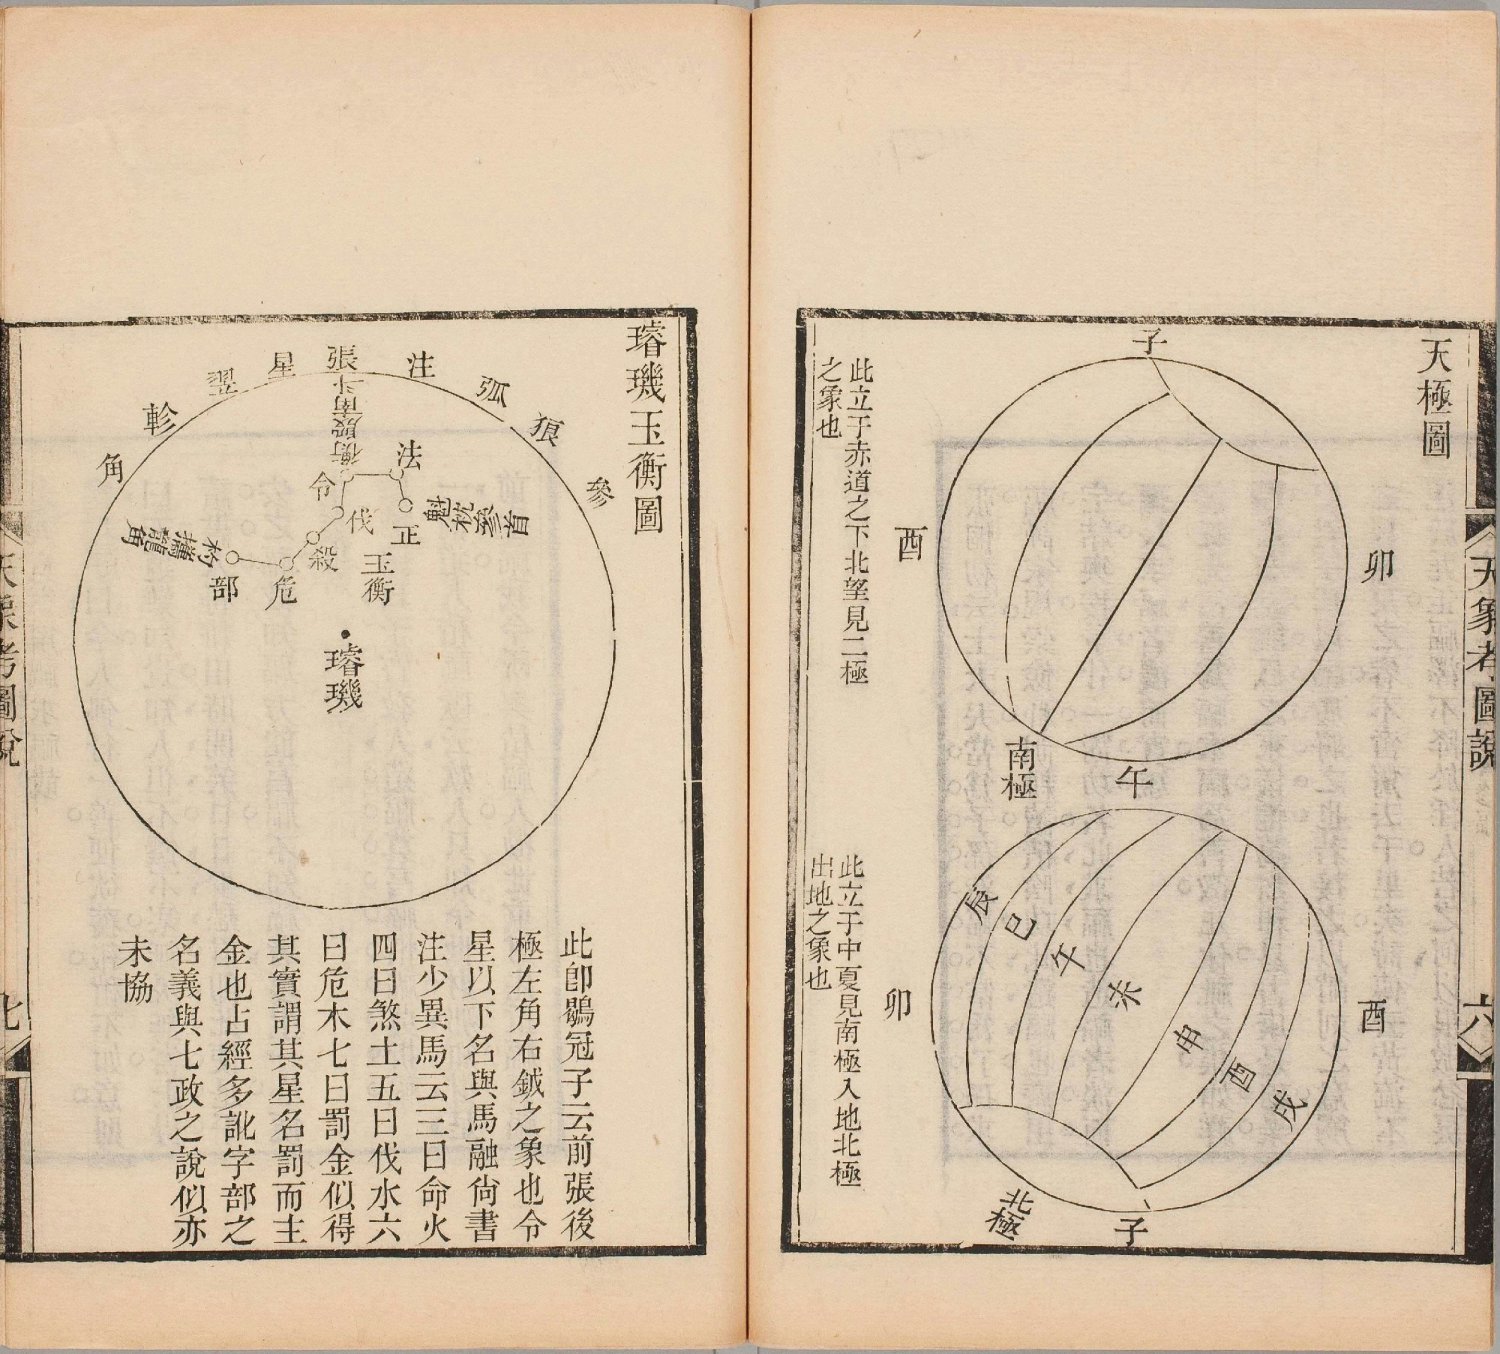 天極圖
子
卯
酉
南極
午
此立于赤道之下北望見二極
之象也
辰
巳
午
未
申
酉
戌
卯
酉
北極
子
此立于中夏見南極入地北極
出地之象也
天象考圖說
六
璿璣玉衡圖
參
狼
弧
注
張
星
翌
軫
角
衡殷南斗
法
令
正
伐
殺
危
部
魁枕參首
杓攜龍角
玉衡
璿璣
此卽鶡冠子云前張後
極左角右鉞之象也令
星以下名與馬融尙書
注少異馬云三曰命火
四曰煞土五曰伐水六
曰危木七曰罰金似得
其實謂其星名罰而主
金也占經多訛字部之
名義與七政之說似亦
未協
天象考圖說